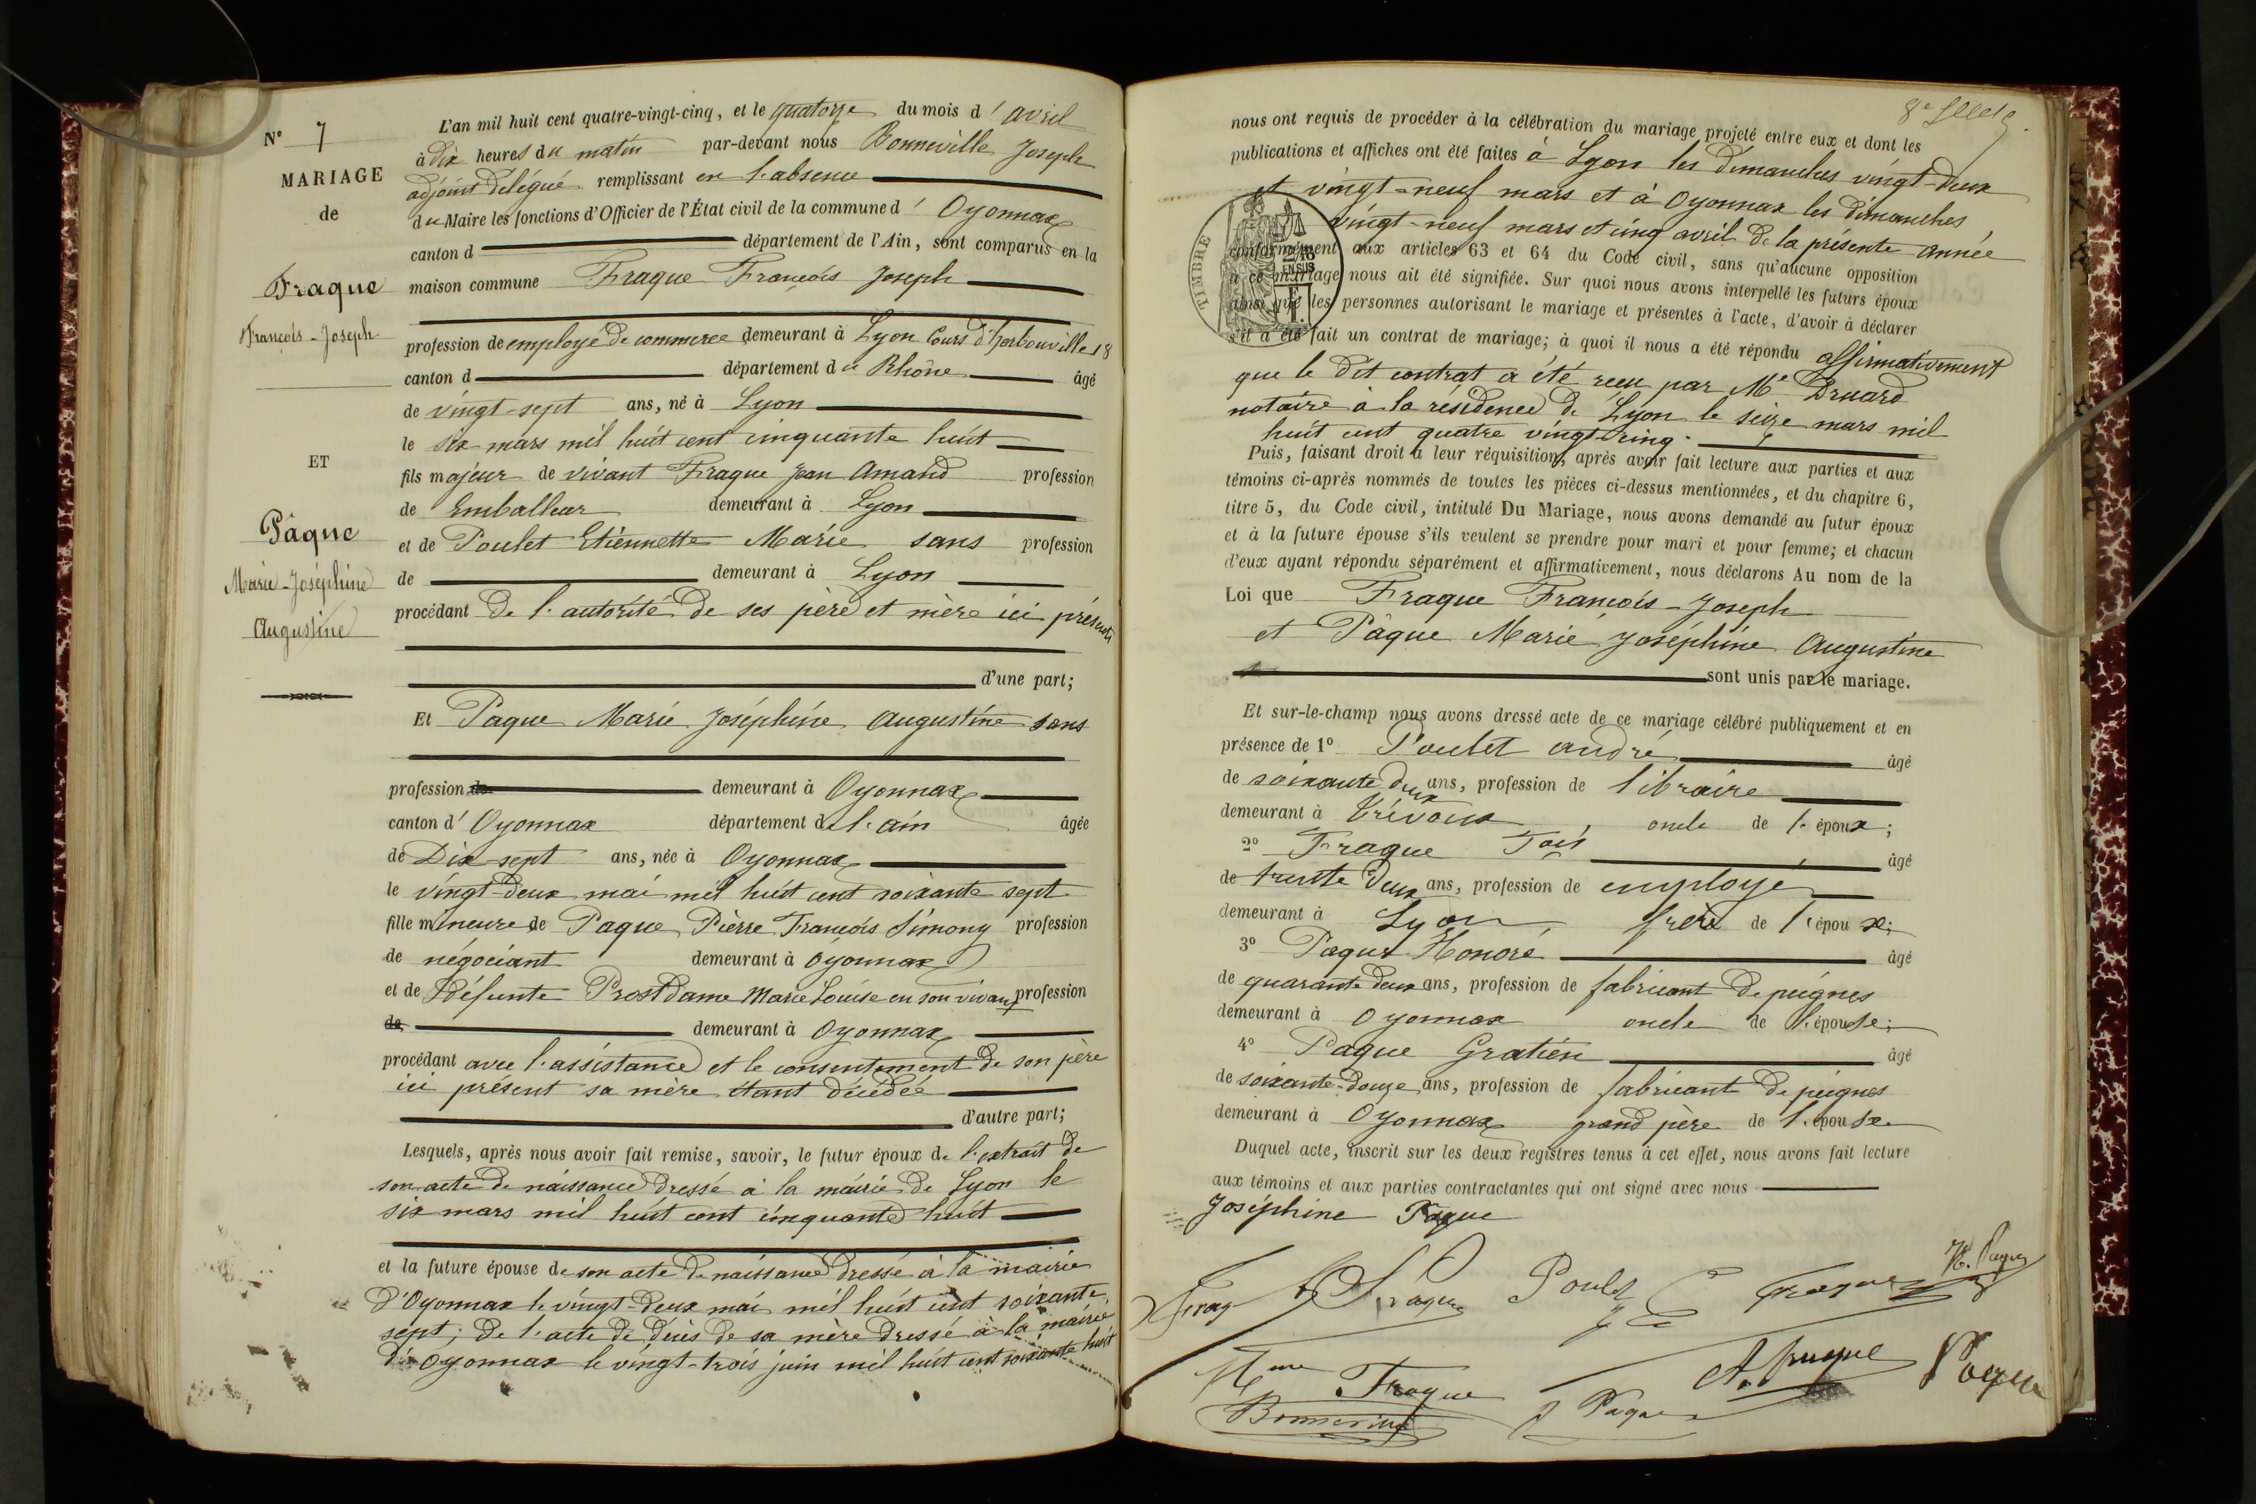 N° 7
MARIAGE
de
Fraque
François-Joseph
ET
Pâque
Marie-Joséphine
Augustine
L'an mil huit cent quatre-vingt-cinq, et le quatorze du mois d'avril
à dix heures du matin par-devant nous Bonneville Joseph
adjoint délégué remplissant en l'absence
du Maire les fonctions d'Officier de l'État civil de la commune d'Oyonnax
canton d département de l'Ain, sont comparus en la
maison commune Fraque François Joseph
profession de employé de commerce demeurant à Lyon Cours d'herbouville 18
canton d département du Rhône âgé
de vingt-sept ans, né à Lyon
le six mars mil huit cent cinquante huit
fils majeur de vivant Fraque Jean Amand profession
de Emballeur demeurant à Lyon
et de Poulet Etiennette Marie sans profession
de demeurant à Lyon
procédant de l'autorité de ses père et mère ici présents
d'une part;
Et Paque Marie Joséphine Augustine sans
profession de demeurant à Oyonnax
canton d'Oyonnax département de l'ain âgée
de Dix-sept ans, née à Oyonnax
le vingt-deux mai mil huit cent soixante sept
fille mineure de Paque Pierre François Simony profession
de négociant demeurant à Oyonnax
et de Défunte Prost dame Marie Louise en son vivant profession
de demeurant à Oyonnax
procédant avec l'assistance et le consentement de son père
ici présent sa mère étant décédée
d'autre part;
Lesquels, après nous avoir fait remise, savoir, le futur époux de l'extrait de
son acte de naissance dressé à la mairie de Lyon le
six mars mil huit cent cinquante huit
et la future épouse de son acte de naissance dressé à la mairie
d'Oyonnax le vingt-deux mai mil huit cent soixante
sept; de l'acte de décès de sa mère dressé à la mairie
d'Oyonnax le vingt-trois juin mil huit cent soixante huit
nous ont requis de procéder à la célébration du mariage projeté entre eux et dont les
publications et affiches ont été faites à Lyon les dimanches vingt-deux
et vingt-neuf mars et à Oyonnax les dimanches
vingt-neuf mars et cinq avril de la présente année
TIMBRE
conformément aux articles 63 et 64 du Code civil, sans qu'aucune opposition
à ce mariage nous ait été signifiée. Sur quoi nous avons interpellé les futurs époux
ainsi que les personnes autorisant le mariage et présentes à l'acte, d'avoir à déclarer
s'il a été fait un contrat de mariage; à quoi il nous a été répondu affirmativement
que le dit contrat a été reçu par Me Druard
notaire à la résidence de Lyon le seize mars mil
huit cent quatre vingt-cinq.
Puis, faisant droit à leur réquisition, après avoir fait lecture aux parties et aux
témoins ci-après nommés de toutes les pièces ci-dessus mentionnées, et du chapitre 6,
titre 5, du Code civil, intitulé Du Mariage, nous avons demandé au futur époux
et à la future épouse s'ils veulent se prendre pour mari et pour femme; et chacun
d'eux ayant répondu séparément et affirmativement, nous déclarons Au nom de la
Loi que Fraque François-Joseph
et Pâque Marie Joséphine Augustine
sont unis par le mariage.
Et sur-le-champ nous avons dressé acte de ce mariage célébré publiquement et en
présence de 1° Poulet andré âgé
de soixante deux ans, profession de libraire
demeurant à Trévoux, oncle de l'époux;
2° Fraque âgé
de trente deux ans, profession de employé
demeurant à Lyon frère de l'époux;
3° Paque Honoré âgé
de quarante deux ans, profession de fabricant de peignes
demeurant à Oyonnax oncle de l'épouse;
4° Paque Gratien âgé
de soixante-douze ans, profession de fabricant de peignes
demeurant à Oyonnax grand père de l'épouse
Duquel acte, inscrit sur les deux registres tenus à cet effet, nous avons fait lecture
aux témoins et aux parties contractantes qui ont signé avec nous
Joséphine Paque
Fraque
H. Paque
Mme Fraque
Paque
Bonneville
P Paque